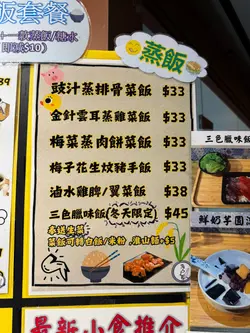 飯套餐
十一款蒸飯/糖水
即減$10)
蒸飯
豉汁蒸排骨菜飯 $33
金針雲耳蒸雞菜飯 $33
梅菜蒸肉餅菜飯 $33
梅子花生炆豬手飯 $33
滷水雞脾/翼菜飯 $38
三色臘味飯(冬天限定) $45
奉送生菜
菜飯可轉白飯/米粉,淮山麵+$5
三色臘味飯
鮮奶芋圓
最新小食推介